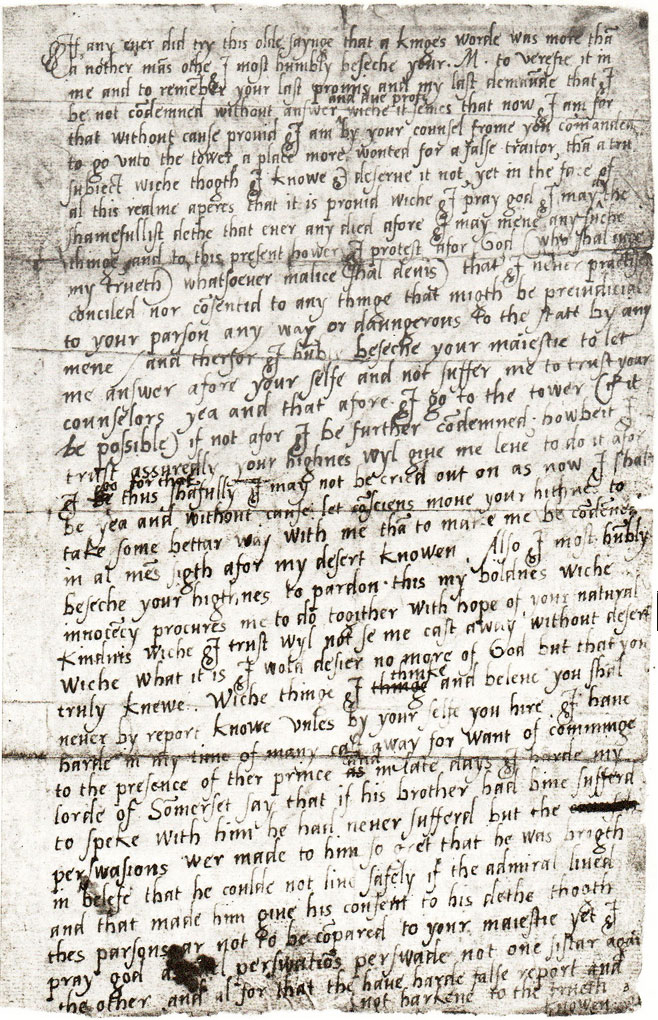 If any euer did try this olde saynge that a kinges worde was more tha
a nother mãs othe I most humbly beseche your .M. to verefie it in
me and to remeber your last promis and my last demaunde that I
be not cõdemned without answer and due profe wiche it semes that now I am for
that without cause prouid I am by your counsel frome you comanded
to go vnto the tower a place more wonted for a false traitor, tha a tru
subiect wiche thogth I knowe I deserue it not, yet in the face of
al this realme aperes that it is prouid wiche I pray god I may the
shamefullist dethe that euer any died afore I may mene any suche
thinge and to this present hower I protest afor God (who shal iuge
my trueth) whatsoeuer malice shal deuis) that I neuer practised
conciled nor cõsentid to any thinge that migth be preiudicial
to your parson any way or daungerous to the statt by any
mene / and therfor I hubly beseche your maiestie to let
me answer afore your selfe and not suffer me to trust your
counselors yea and that afore I go to the tower (if it
be possible) if not afor I be further cõdemned. howbeit I
trust assuredly your highnes wyl giue me leue to do it afor
I go for that thus shafully I may not be cried out on as now I shal
be yea and without cause let cõsciens moue your hithnes to
take some bettar way with me tha to make me be cõdened
in al mẽs sigth afor my desert knowen. Also I most hubly
beseche your higthnes to pardon this my boldnes wiche
innocẽcy procures me to do togither with hope of your natural
kindnis wiche I trust wyl not se me cast away without desert
wiche what it is I wold desier no more of God but that you
truly knewe. Wiche thinge I thinke and beleue you shal
neuer by report knowe vnles by your selfe you hire. I haue
harde in my time of many cast away for want of comminge
to the presence of ther prince and in late days I harde my
lorde of Somerset say that if his brother had bine sufferd
to speke with him he had neuer sufferd but the
perswasions wer made to him so gret that he was brogth
in belefe that he coulde not liue safely if the admiral liued
and that made him giue his consent to his dethe thogth
thes parsons ar not to be cõpared to your maiestie yet I
pray god perswatiõs perswade not one sistar again
the other and al for that the haue harde false report and
not hartene to the trueth
knowen